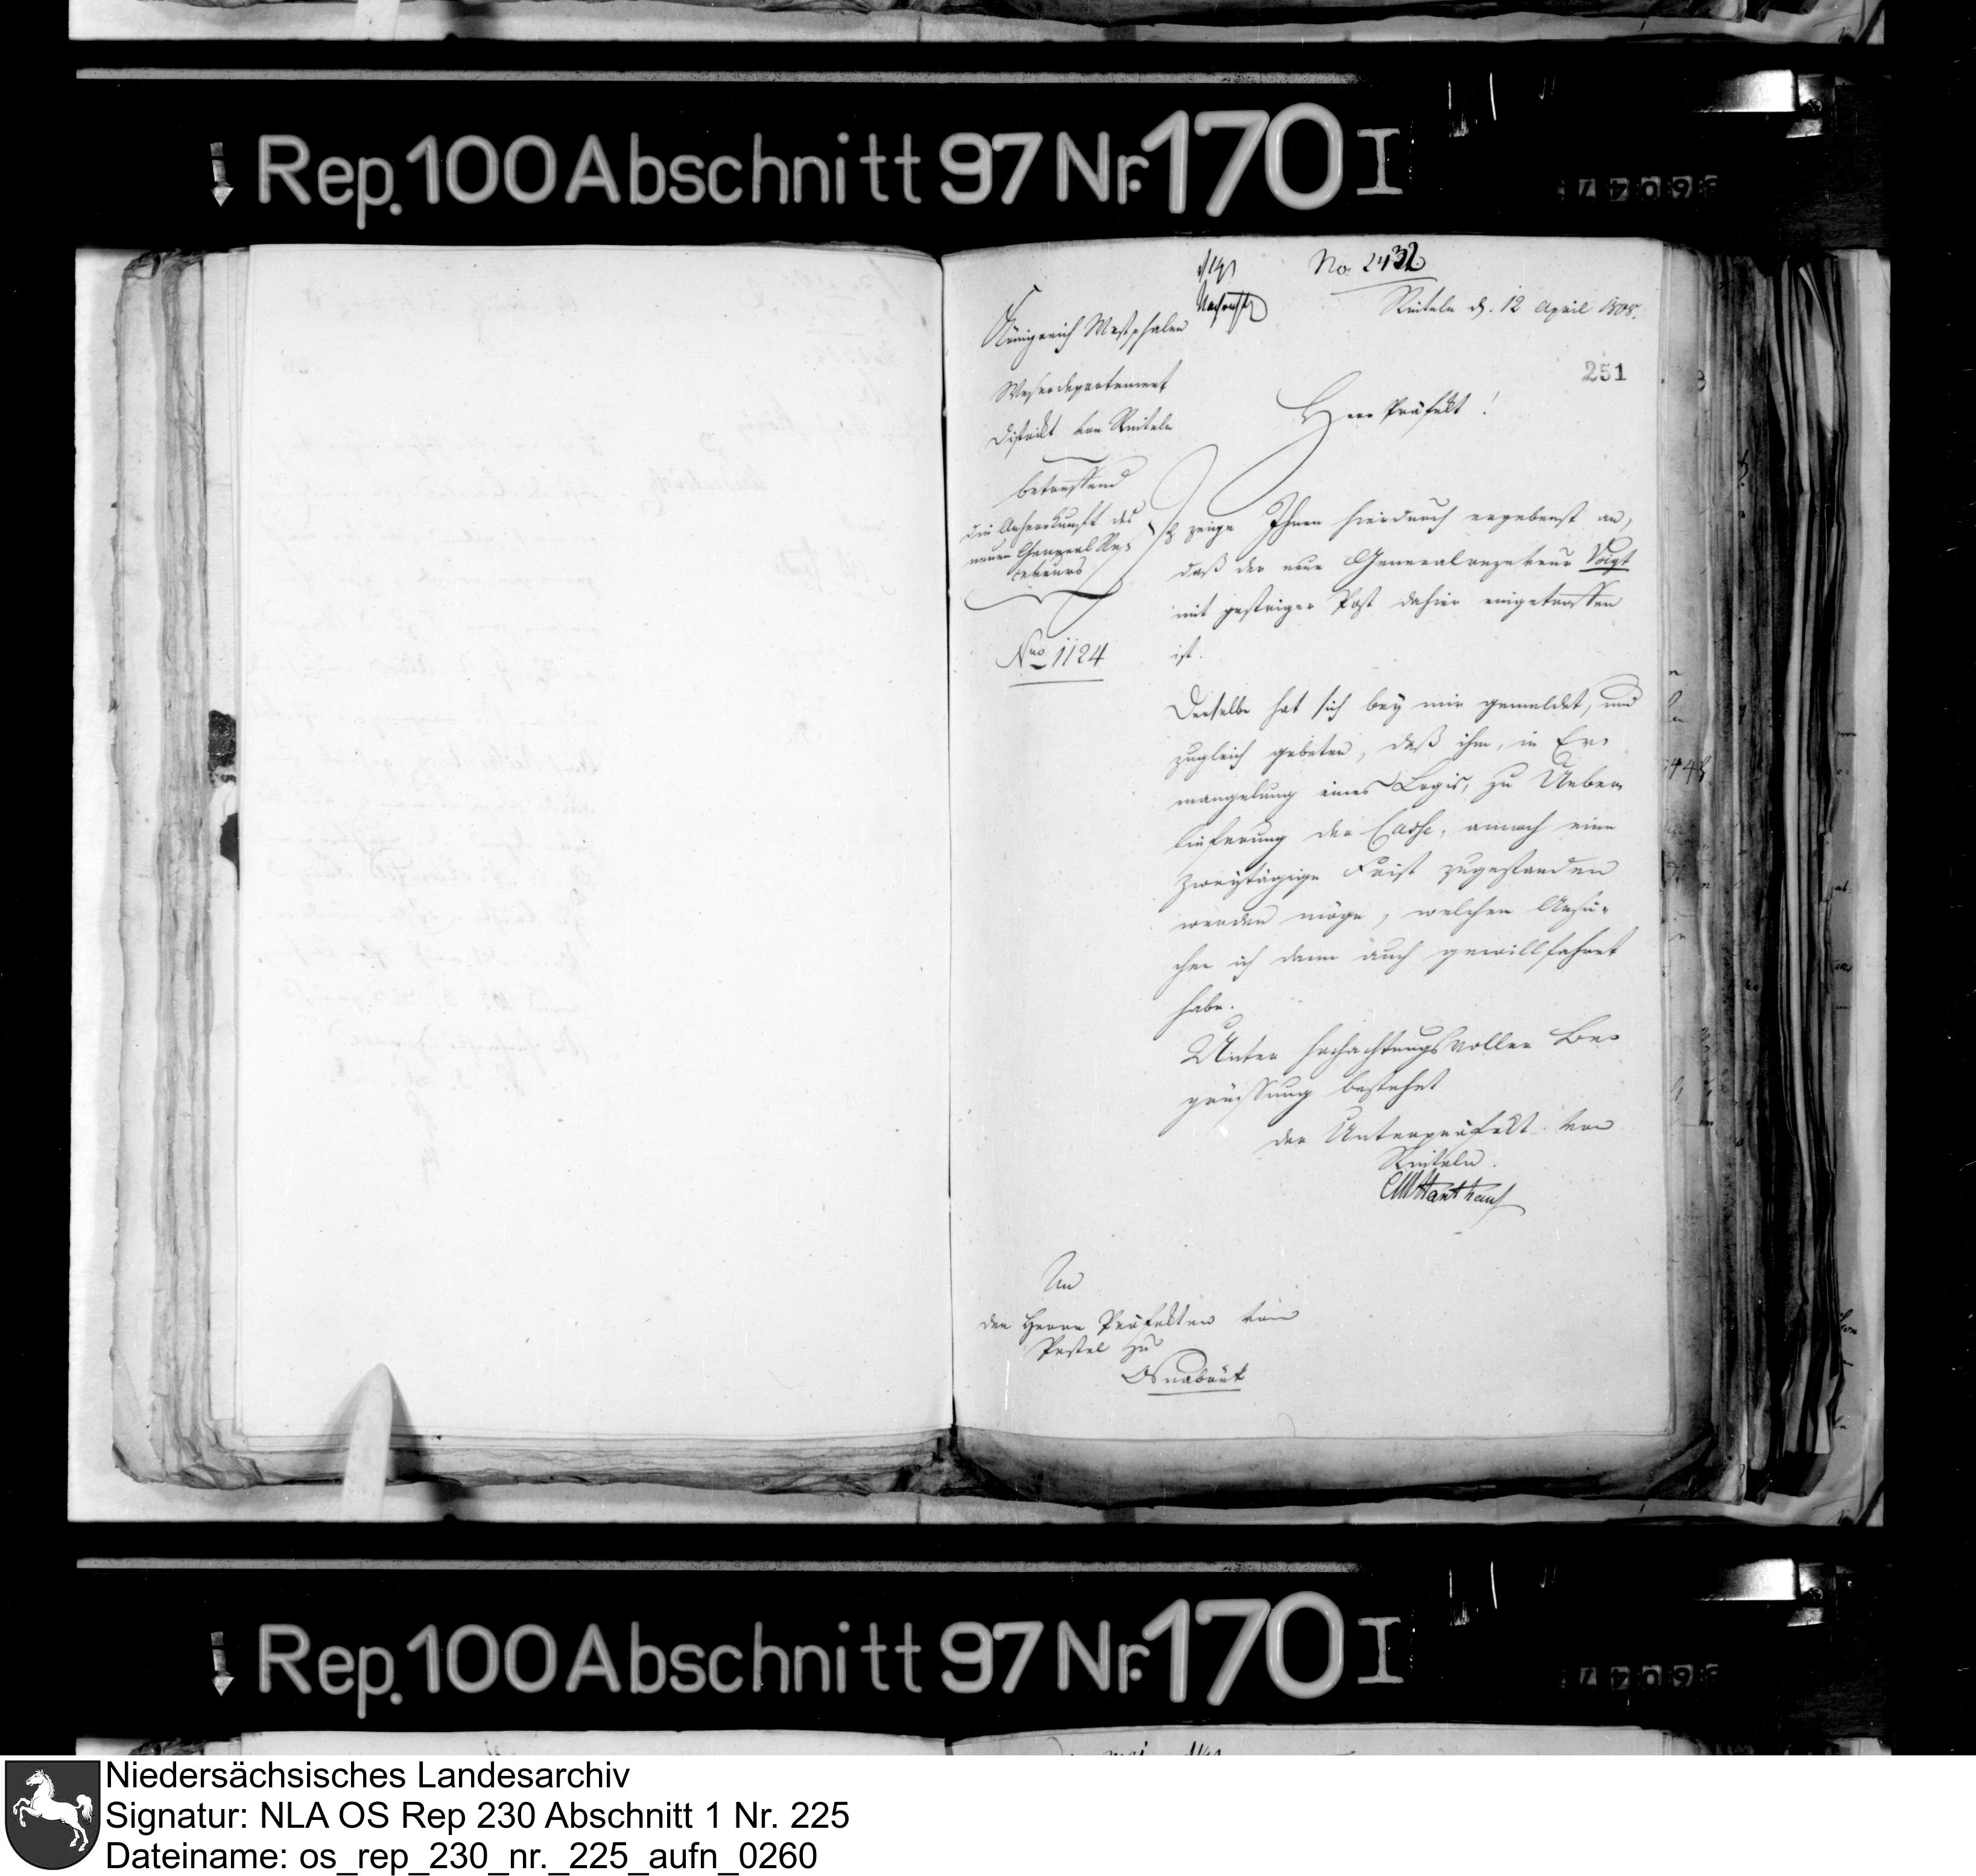 Rep. 100 Abschnitt 97 Nr. 170 I
No. 2432
Rinteln d. 12 April 1808.
251
Königreich Westphalen
Weserdepartement
District von Rinteln
betreffend
die Anherkunft des
neuen General Re-
ceveurs
Nro 1124
Herr Präfekt!
Ich zeige Ihnen hierdurch ergebenst an,
daß der neue Generalrezeveur Voigt
mit gestriger Post dahier eingetroffen
ist.
Derselbe hat sich bey mir gemeldet, und
zugleich gebeten, daß ihm, in Er-
mangelung eines Logis, zu Ueber
lieferung der Casse, annoch eine
zweytägige Frist zugestanden
werden möge, welchen Ansu-
chen ich denn auch gewillfahret
habe.
Unter hochachtungsvoller Be-
grüssung bestehet
der Unterpräfekt von
Rinteln.
An
den Herrn Präfekten von
Pestel zu
Osnabrük
Rep. 100 Abschnitt 97 Nr. 170 I
Niedersächsisches Landesarchiv
Signatur: NLA OS Rep 230 Abschnitt 1 Nr. 225
Dateiname: os_rep_230_nr._225_aufn_0260